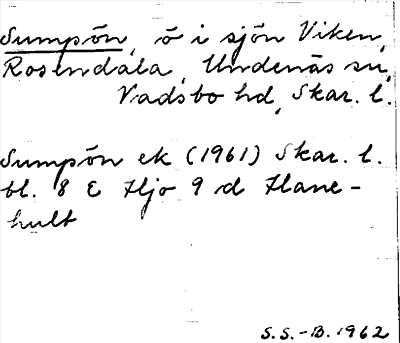 Sumpön, ö i sjön Viken,
Rosendala, Undenäs sn,
Vadsbo hd, Skar. l.
Sumpön ek (1961) Skar. l.
bl. 8 E Hjo 9 d Hane-
hult
S.S.-B. 1962